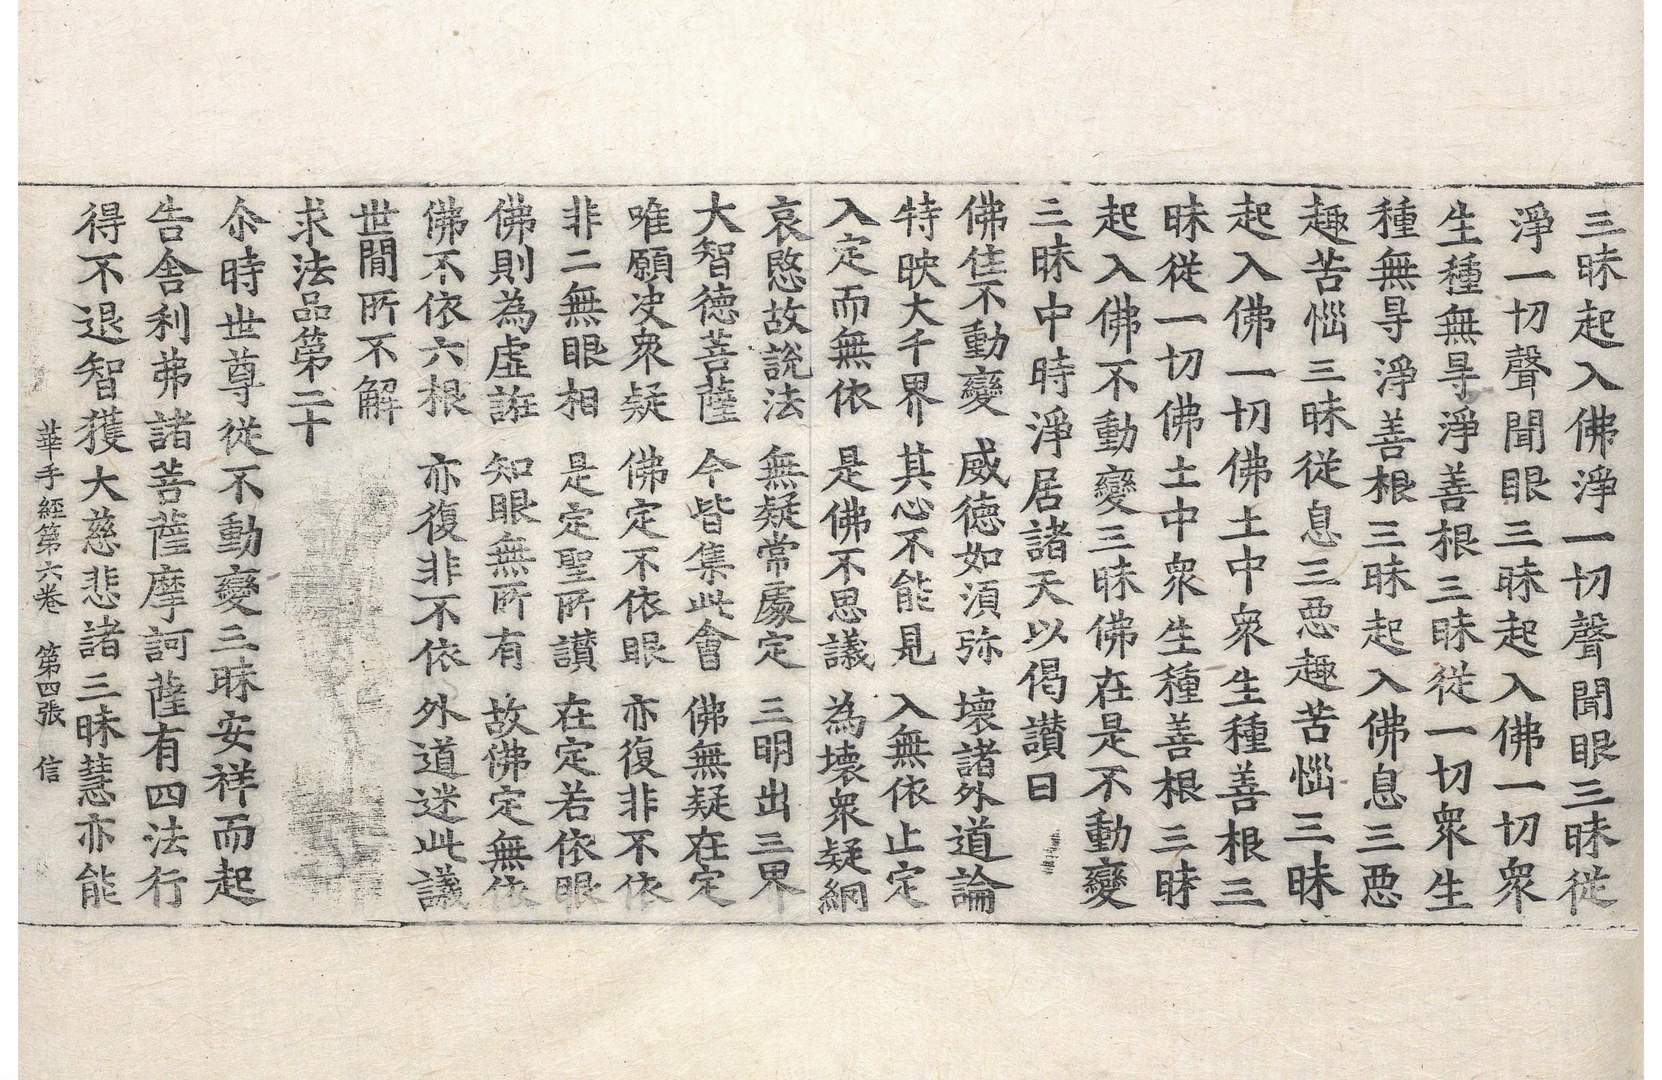 三昧起入佛淨一切聲聞眼三昧從
淨一切聲聞眼三昧起入佛一切衆
生種無㝵淨善根三昧從一切衆生
種無㝵淨善根三昧起入佛息三惡
趣苦惱三昧從息三惡趣苦惱三昧
起入佛一切佛土中衆生種善根三
昧從一切佛土中衆生種善根三昧
起入佛不動變三昧佛在是不動變
三昧中時淨居諸天以偈讃曰
佛住不動變　威德如須弥　壞諸外道論
特映大千界　其心不能見　入無依止定
入定而無依　是佛不思議　為壞衆疑網
哀愍故說法　無疑常處定　三明出三界
大智德菩薩　今皆集此會　佛無疑在定
唯願决衆疑　佛定不依眼　亦復非不依
非二無眼相　是定聖所讃　在定若依眼
佛則為虛誑　知眼無所有　故佛定無依
佛不依六根　亦復非不依　外道迷此議
世間所不解
求法品第二十
尒時世尊從不動變三昧安祥而起
告舍利弗諸菩薩摩訶薩有四法行
得不退智獲大慈悲諸三昧慧亦能
華手經第六卷　第四張　信